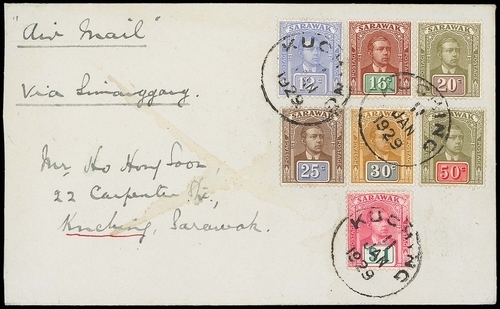 "Air Mail"
Via Simanggang.
Mr. Ho Hong Soon,
22 Carpenter St.,
Kuching, Sarawak.
SARAWAK
SARAWAK 16c
SARAWAK 20c
25c
SARAWAK 30c
SARAWAK 50c
SARAWAK $1
KUCHING 11 JAN 1929
KUCHING 11 JAN 1929
KUCHING 11 JAN 1929